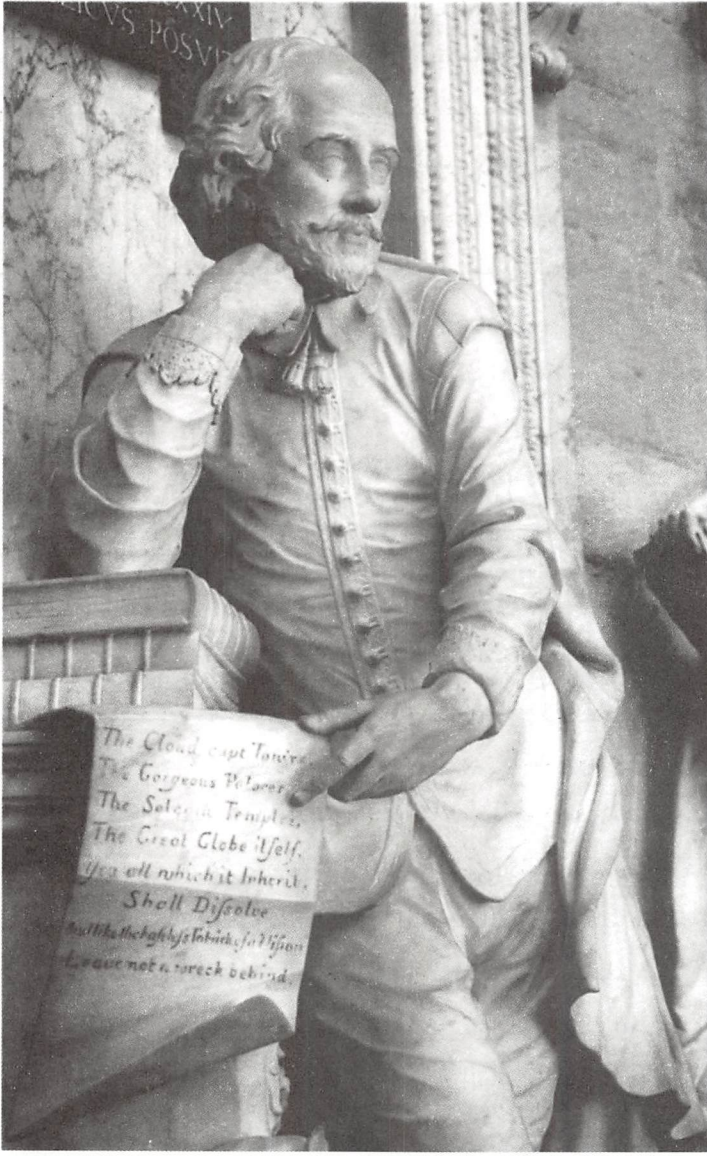 XXIV
LICVS POSVIT
The Cloud capt Tow'rs,
The Gorgeous Palaces,
The Solemn Temples,
The Great Globe itſelf,
Yea all which it Inherit,
Shall Diſsolve
And like the baſeleſs Fabrick of a Viſion
Leave not a wreck behind.